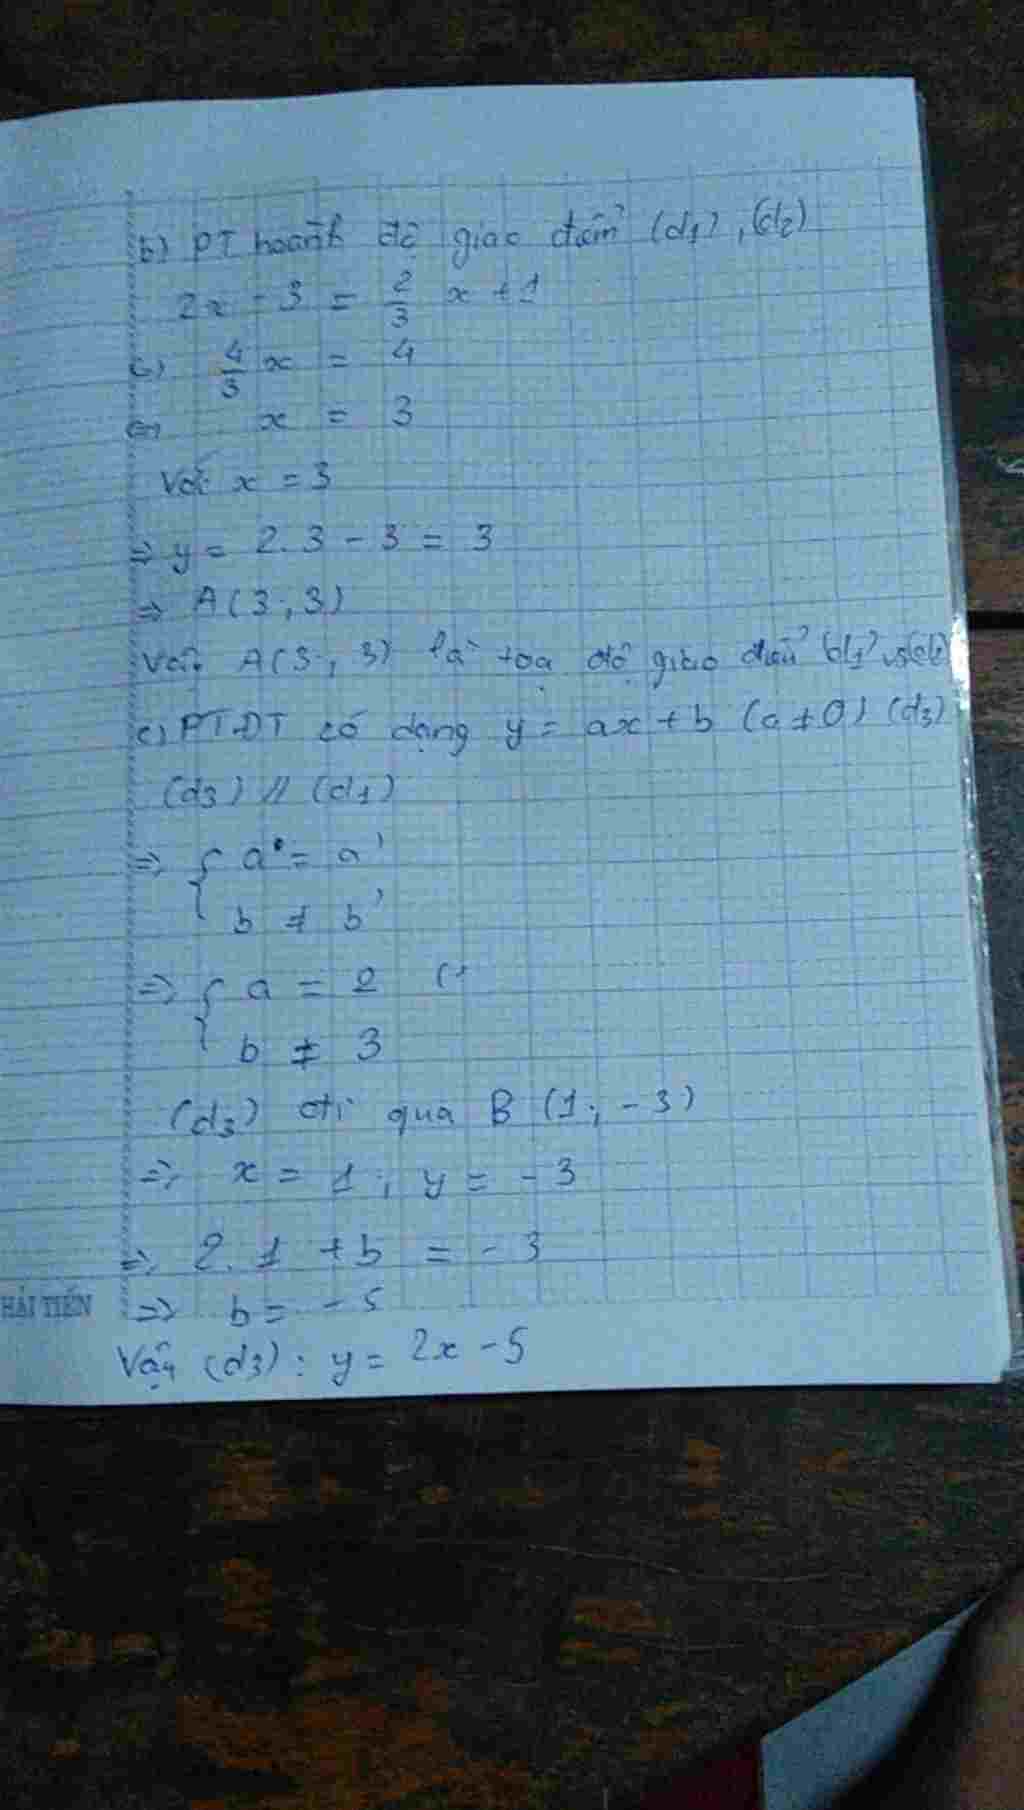 b) PT hoành độ giao điểm (d1), (d2)
2x - 3 = 2/3 x + 1
<=> 4/3 x = 4
<=> x = 3
Với x = 3
=> y = 2.3 - 3 = 3
=> A(3; 3)
Vậy A(3; 3) là tọa độ giao điểm (d1) và (d2)
c) PTĐT có dạng y = ax + b (a ≠ 0) (d3)
(d3) // (d1)
=> { a = a'
b ≠ b'
=> { a = 2 (
b ≠ 3
(d3) đi qua B (1; -3)
=> x = 1; y = -3
=> 2.1 + b = -3
HẢI TIẾN => b = -5
Vậy (d3): y = 2x - 5